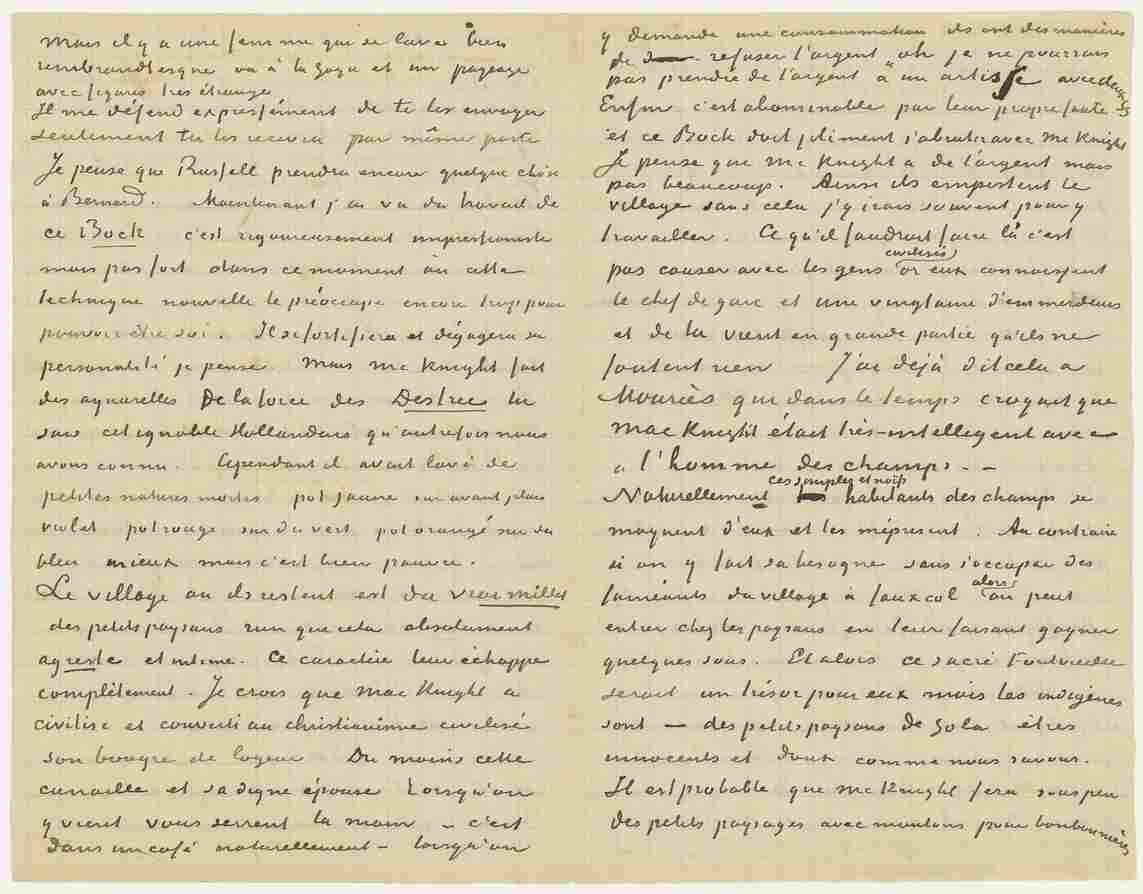 mais il y a une femme qui se lave bien
rembrandtesque ou à la Goya et un paysage
avec figures très étrange
Il me défend expressément de te les envoyer
seulement tu les recevra par même poste
Je pense que Russell prendra encore quelque chôse
à Bernard. Maintenant j'ai vu du travail de
ce Bock c'est rigoureusement impressioniste
mais pas fort dans ce moment où cette
technique nouvelle le préoccupe encore trop pour
pouvoir être soi. Il se fortifiera et dégagera sa
personnalité je pense. Mais Mc Knight fait
des aquarelles de la force des Destree tu
sais cet ignoble Hollandais qu'autrefois nous
avons connu. Cependant il avait lavé de
petites natures mortes pot jaune sur avant plan
violet pot rouge sur du vert pot orangé sur du
bleu mieux mais c'est bien pauvre.
Le village où ils restent est du vrai millet
des petits paysans rien que cela absolument
agreste et intime. Ce caractère leur échappe
complètement. Je crois que Mac Knight a
civilisé et converti au christianisme civilisé
son bougre de logeur Du moins cette
canaille et sa digne épouse lorsqu'on
y vient vous serrent la main – c'est
dans un café naturellement – lorsqu'on
y demande une consommation ils ont des manières
de refuser l'argent "oh je ne pourrais
pas prendre de l'argent à un artisse" avec deux ss
Enfin c'est abominable par leur propre faute
et ce Bock doit joliment s'abrutir avec Mc Knight
Je pense que Mc Knight a de l'argent mais
pas beaucoup. Ainsi ils empestent le
village sans cela j'y irais souvent pour y
travailler. Ce qu'il faudrait faire là c'est
civilisés
pas causer avec les gens or eux connaissent
le chef de gare et une vingtaine d'emmerdeurs
et de là vient en grande partie qu'ils ne
foutent rien J'ai déjà dit cela a
Mouriès qui dans le temps croyait que
Mac Knight était très-intelligent avec
a l'homme des champs. - -
ces simples et naïfs
Naturellement habitants des champs se
moquent d'eux et les méprisent. Au contraire
si on y fait sa besogne sans s'occuper des
alors
fainéants du village à faux col on peut
entrer chez les paysans en leur faisant gagner
quelques sous. Et alors ce sacré Fontvieille
serait un trésor pour eux mais les indigènes
sont — des petits paysans de Zola êtres
innocents et doux comme nous savons.
Il est probable que Mc Knight fera sous peu
des petits paysages avec moutons pour bonbonnières